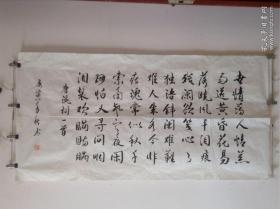 世情薄人情恶
雨送黄昏花易
落晓风干泪痕
残欲笺心事
独语斜阑难难
难人成各今非昨
病魂常似秋千
索角声寒夜阑
珊怕人寻问咽
泪装欢瞒瞒瞒
唐琬词一首